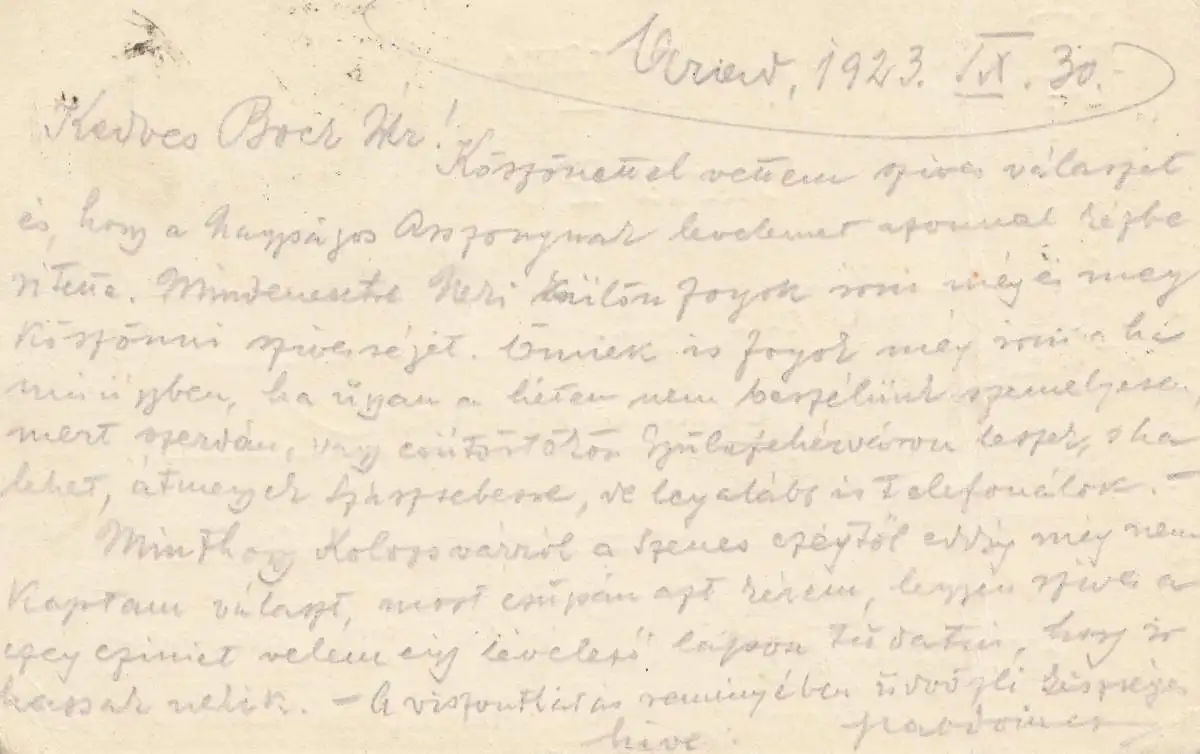 1923. IX. 30.
Kedves Bock Úr!
Köszönettel vettem szives válaszát
és, hogy a Nagyságos Asszonynak levelemet azonnal kézbe
sitette. Mindenesetre Neki külön fogok irni még és meg
köszönni szivességét. Önnek is fogok még irni a bá
nyaügyben, ha ugyan a héten nem beszélünk személyesen,
mert szerdán, vagy csütörtökön Gyulafehérváron leszek, s ha
lehet, átmegyek Szászsebesre, de legalább is telefonálok. –
Minthogy Kolozsvárról a Szenes czégtől eddig még nem
kaptam választ, most csupán azt kérem, legyen szives a
czég czimét velem egy levelező lapon tudatni, hogy ir
hassak nekik. – A viszontlátás reményében üdvözli készséges
hive